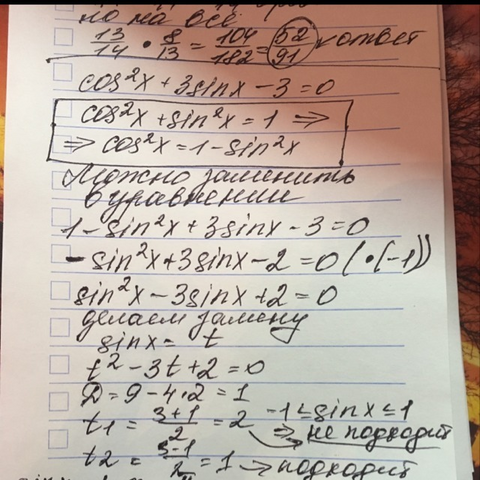 но на все
13/14 · 8/13 = 104/182 = 52/91 ← ответ
cos²x + 3sinx - 3 = 0
cos²x + sin²x = 1 ⇒
⇒ cos²x = 1 - sin²x
Можно заменить
в уравнении
1 - sin²x + 3sinx - 3 = 0
- sin²x + 3sinx - 2 = 0 (·(-1))
sin²x - 3sinx + 2 = 0
делаем замену
sinx = t
t² - 3t + 2 = 0
D = 9 - 4·2 = 1
t1 = (3+1)/2 = 2 -1 ≤ sinx ≤ 1
⇒ не подходит
t2 = (3-1)/2 = 1 → подходит